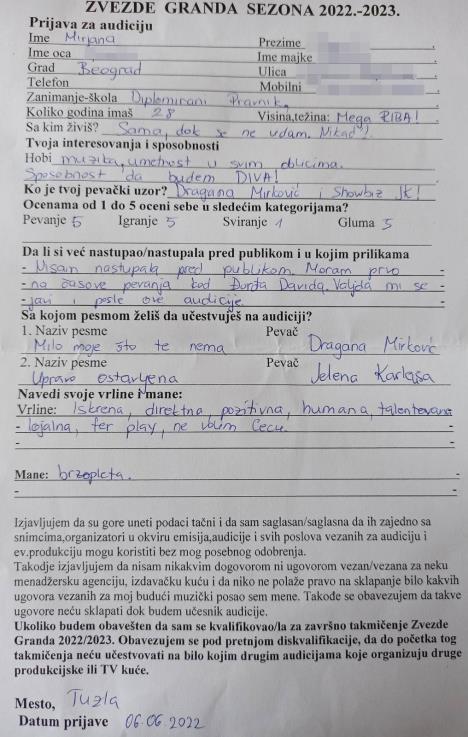 ZVEZDE GRANDA SEZONA 2022.-2023.
Prijava za audiciju
Ime Mirjana Prezime
Ime oca Ime majke
Grad Beograd Ulica
Telefon Mobilni
Zanimanje-škola Diplomirani Pravnik
Koliko godina imaš 28 Visina,težina: Mega RIBA!
Sa kim živiš? Sama, dok se ne udam. Nikad?!
Tvoja interesovanja i sposobnosti
Hobi muzika, umetnost u svim oblicima.
Sposobnost da budem DIVA!
Ko je tvoj pevački uzor? Dragana Mirković i Showbiz JK!
Ocenama od 1 do 5 oceni sebe u sledećim kategorijama?
Pevanje 5 Igranje 5 Sviranje 1 Gluma 5
Da li si već nastupao/nastupala pred publikom i u kojim prilikama
- Nisam nastupala pred publikom. Moram prvo -
- na časove pevanja kod Đorđa Davida. Valjda mi se -
- javi i posle ove audicije -
Sa kojom pesmom želiš da učestvuješ na audiciji?
1. Naziv pesme Pevač
Milo moje što te nema Dragana Mirković
2. Naziv pesme Pevač
Upravo ostavljena Jelena Karleuša
Navedi svoje vrline i mane:
Vrline: Iskrena, direktna, pozitivna, humana, talentovana
- lojalna, fer play, ne volim Cecu. -
- -
Mane: brzopleta. -
- -
Izjavljujem da su gore uneti podaci tačni i da sam saglasan/saglasna da ih zajedno sa
snimcima,organizatori u okviru emisija,audicije i svih poslova vezanih za audiciju i
ev.produkciju mogu koristiti bez mog posebnog odobrenja.
Takodje izjavljujem da nisam nikakvim dogovorom ni ugovorom vezan/vezana za neku
menadžersku agenciju, izdavačku kuću i da niko ne polaže pravo na sklapanje bilo kakvih
ugovora vezanih za moj budući muzički posao sem mene. Takođe se obavezujem da takve
ugovore neću sklapati dok budem učesnik audicije.
Ukoliko budem obavešten da sam se kvalifikovao/la za završno takmičenje Zvezde
Granda 2022/2023. Obavezujem se pod pretnjom diskvalifikacije, da do početka tog
takmičenja neću učestvovati na bilo kojim drugim audicijama koje organizuju druge
produkcijske ili TV kuće.
Mesto, Tuzla
Datum prijave 06.06.2022